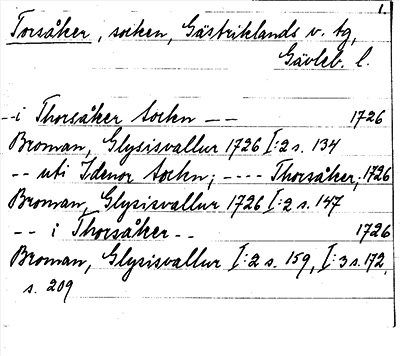 1.
Torsåker, socken, Gästriklands v. tg,
Gävleb. l.
--i Thorsåker Sockn -- 1726
Broman, Glysisvallur 1726 I:2 s. 134
-- uti Idenor Sockn; ---- Thorsåker; 1726
Broman, Glysisvallur 1726 I:2 s. 147
-- i Thorsåker -- 1726
Broman, Glysisvallur I:2 s. 159, I:3 s. 172,
s. 209